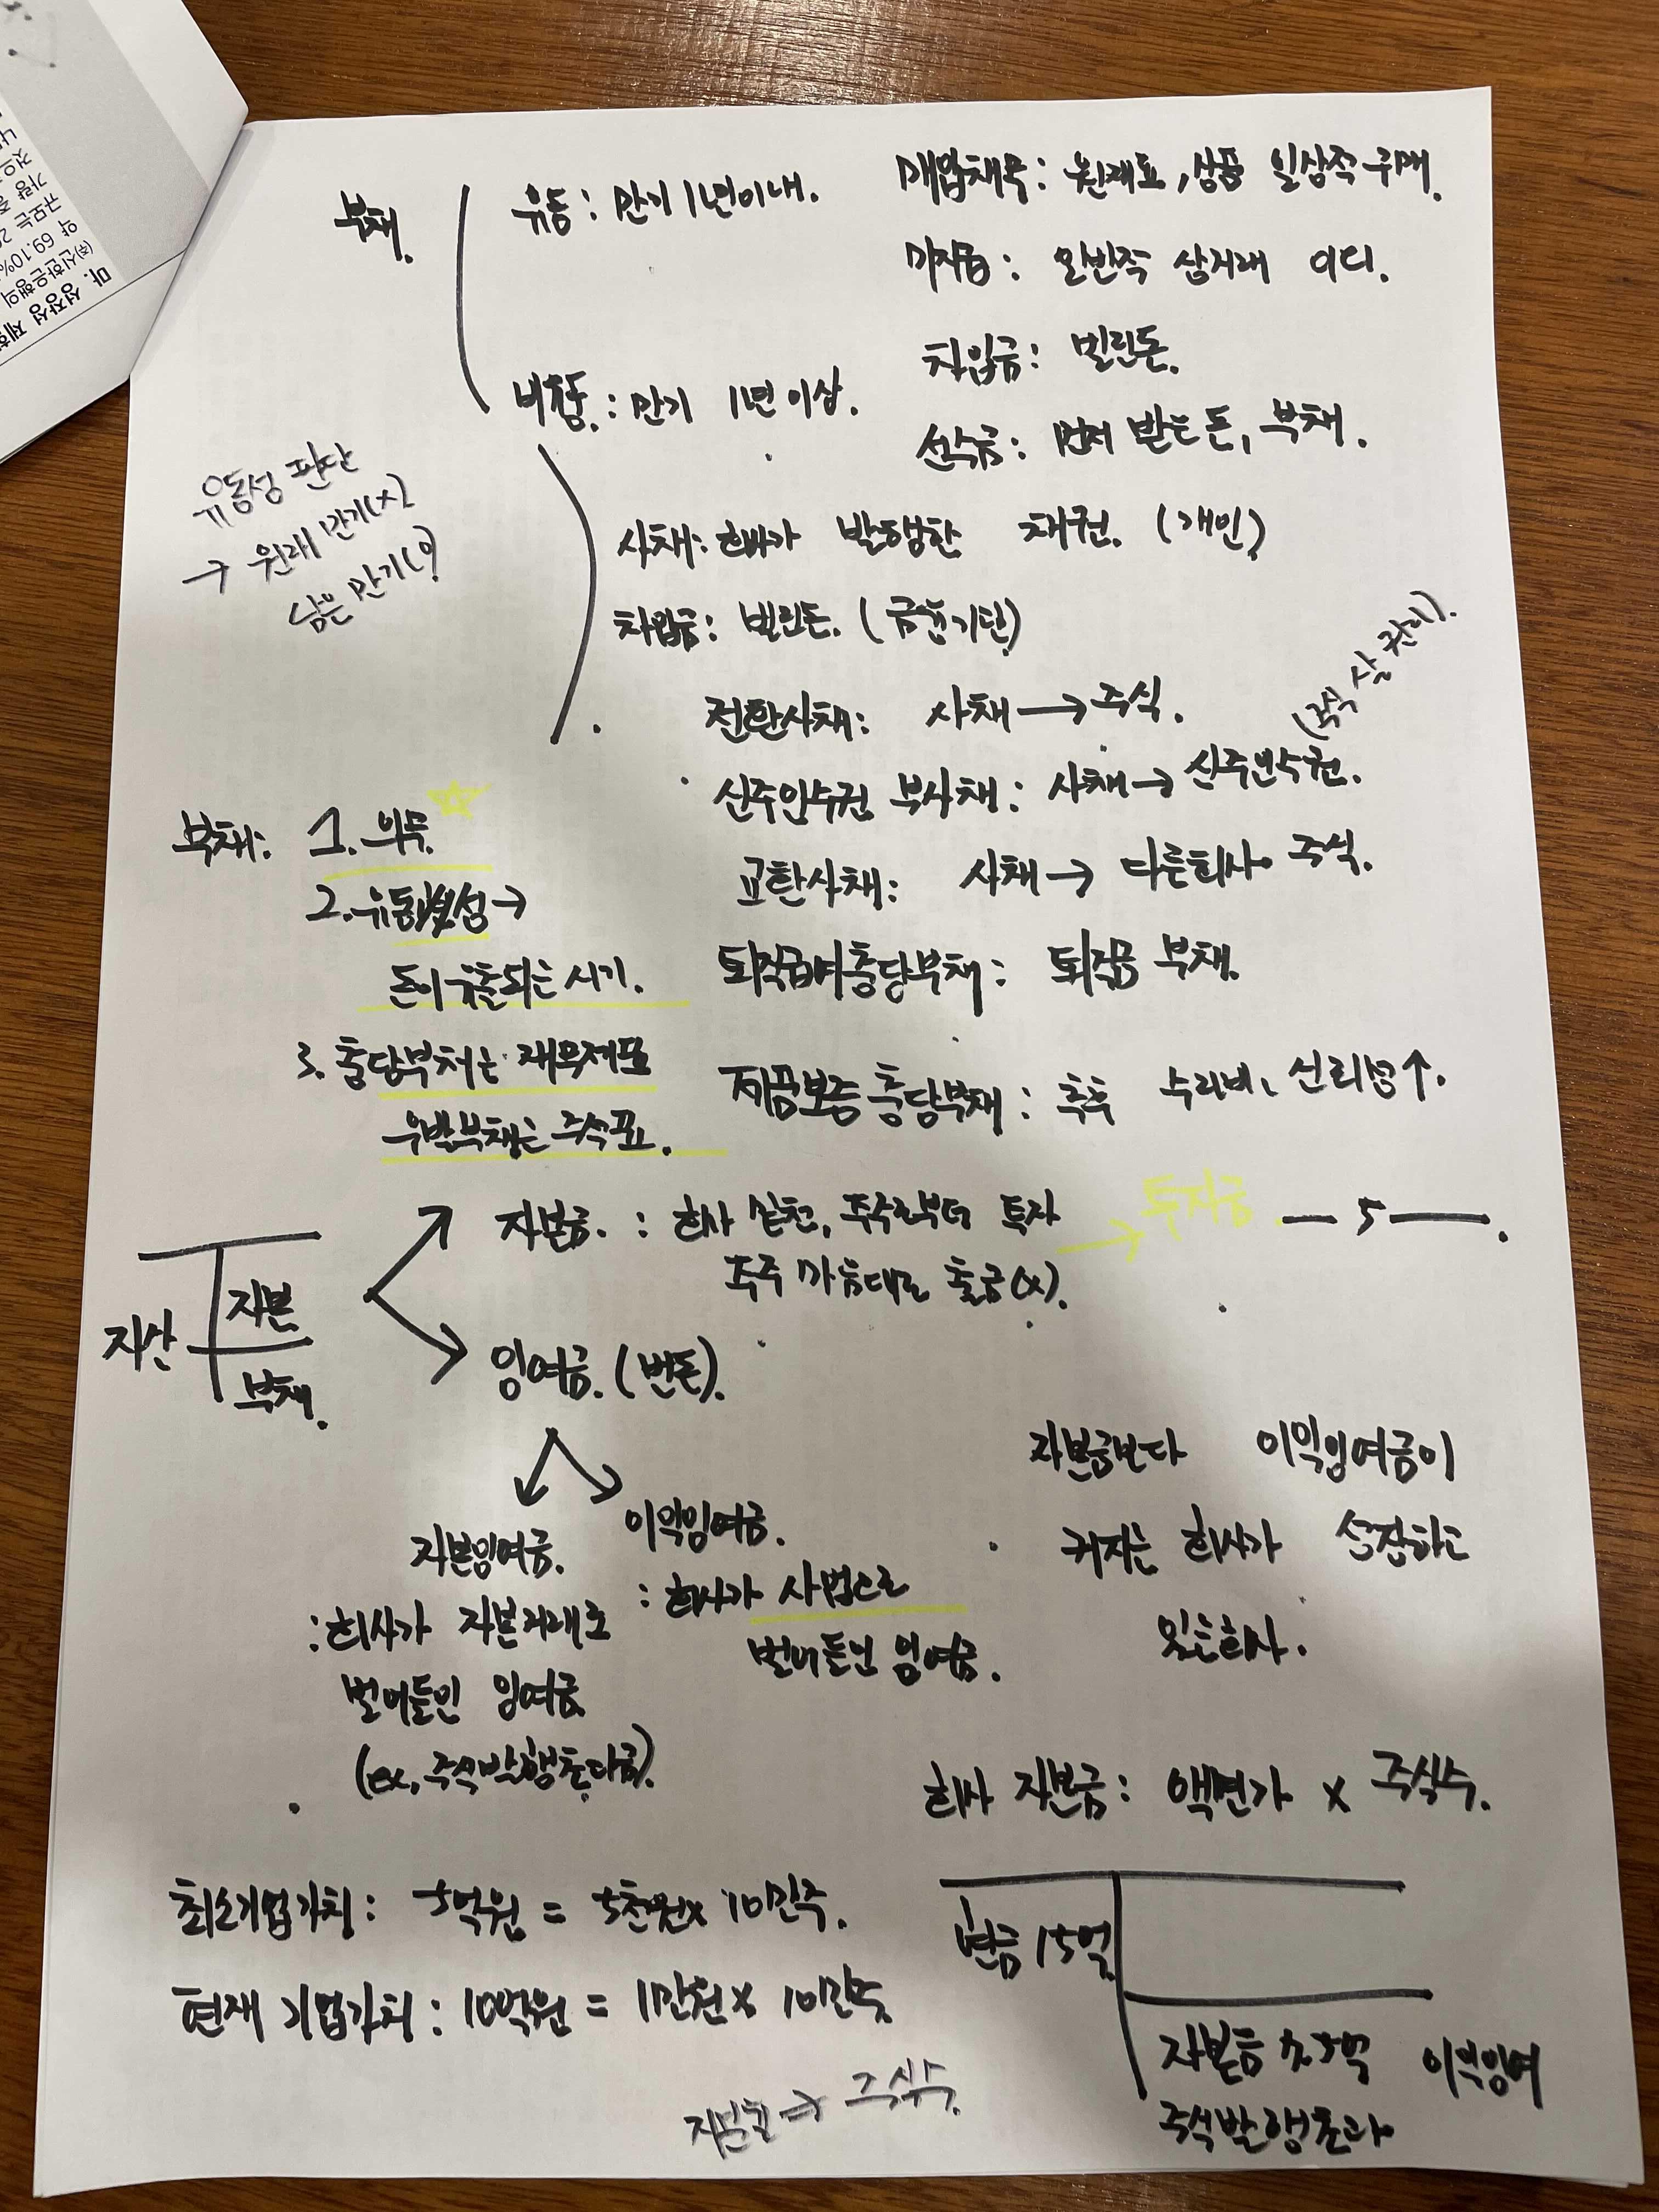 부채.
유동: 만기 1년이내.
매입채무: 원재료, 상품 일상적 구매.
미지급: 일반적 상거래 이외.
차입금: 빌린돈.
선수금: 먼저 받은 돈, 부채.
비유동.: 만기 1년 이상.
유동성 판단
→ 원래 만기(x)
남은 만기(o)
사채: 회사가 발행한 채권. (개인)
차입금: 빌린돈. (금융기관)
전환사채: 사채 → 주식.
신주인수권 부사채: 사채 → 신주인수권.
(주식 살 권리).
교환사채: 사채 → 다른회사 주식.
퇴직급여충당부채: 퇴직금 부채.
제품보증 충당부채: 추후 수리비, 신뢰성↑.
부채: 1. 의무.
2. 유동성 →
돈이 유출되는 시기.
3. 충당부채는 재무제표
우발부채는 주석표.
자산
자본
부채.
자본금. : 회사 밑천, 주주로부터 투자 → 투자금.
주주 마음대로 출금(x).
5
잉여금. (번돈).
자본잉여금.
: 회사가 자본거래로
벌어들인 잉여금
(ex, 주식발행초과금).
이익잉여금.
: 회사가 사업으로
벌어들인 잉여금.
자본금보다 이익잉여금이
커지는 회사가 성장하고
있는회사.
회사 자본금: 액면가 x 주식수.
최소기업가치: 5억원 = 5천원x 10만주.
현재 기업가치: 10억원 = 1만원 x 10만주
→ 주식수.
현금 15억
자본금 5억 이익잉여
주식발행초과